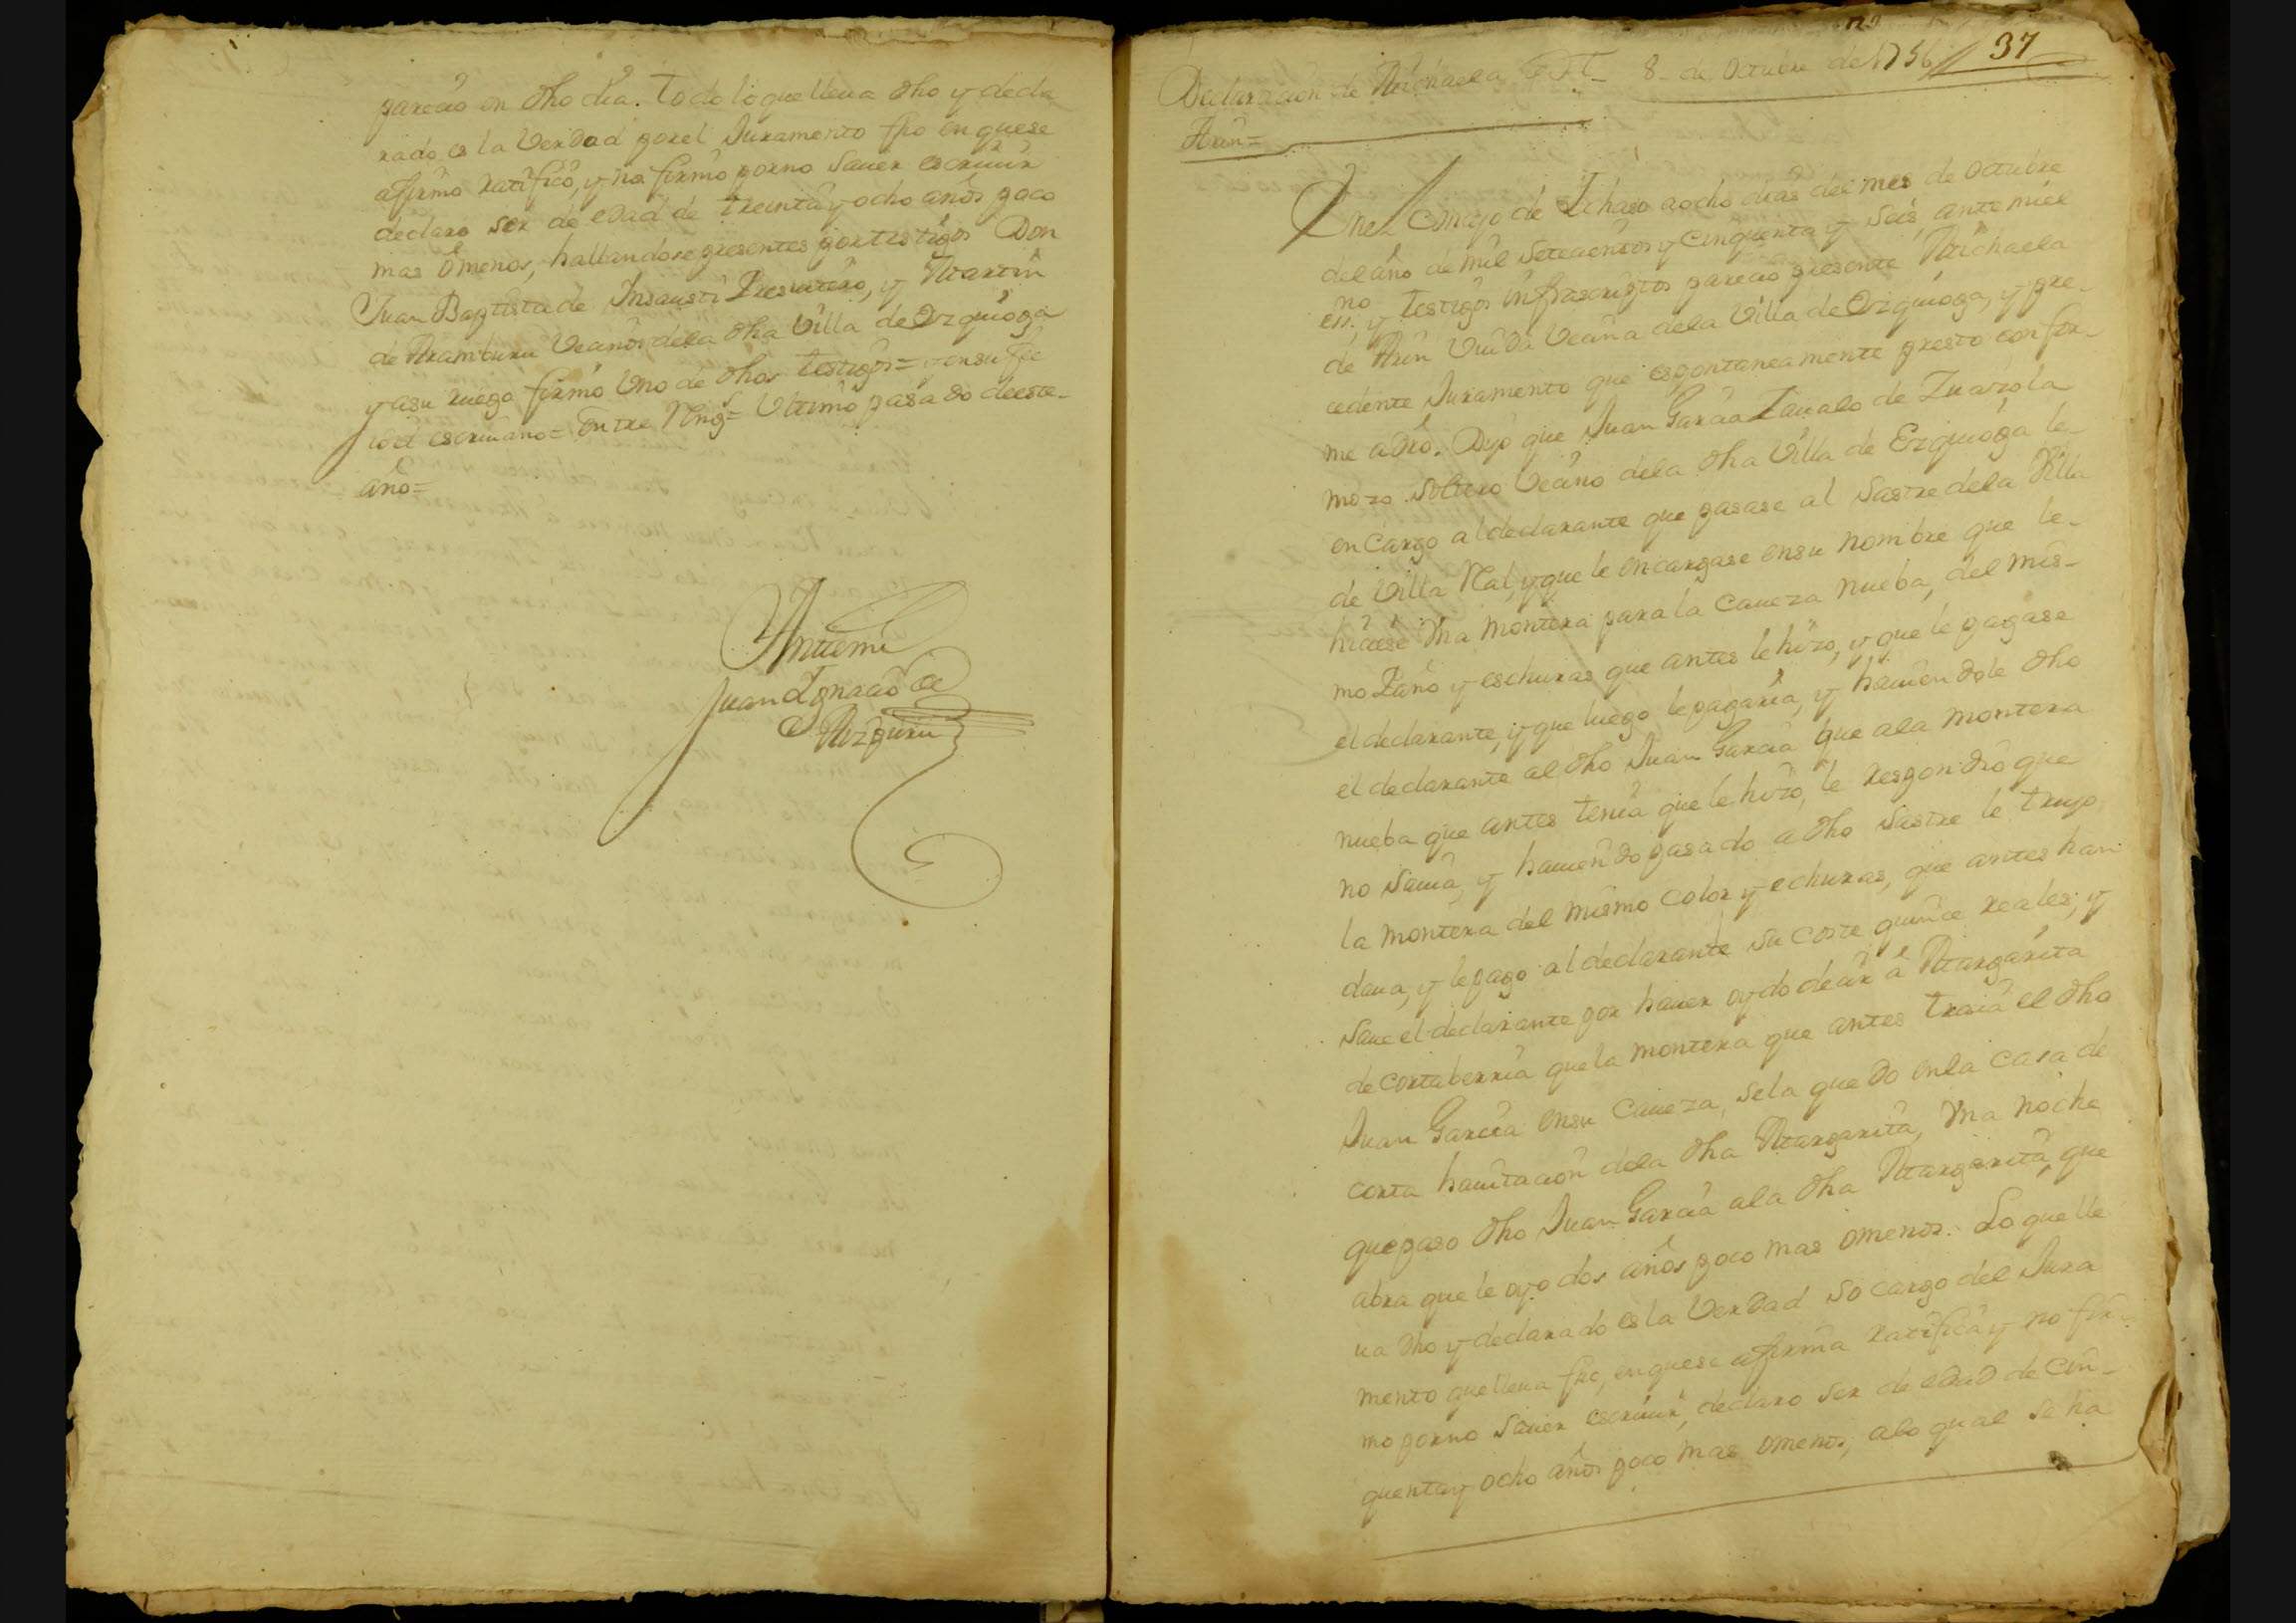 parecio en dho dia. Todo lo que lleua dho y decla
rado es la Verdad por el Juramento fho en que se
affirmo ratificó, y no firmó por no sauer escriuir
declaro ser de edad de treinta y ocho años poco
mas ó menos, hallandose presentes por testigos Don
Juan Baptista de Insausti Presuitero, y Martin
de Aramburu Vecinos dela dha Villa de Ezquioga
y asu ruego firmó Vno de dhos testigos= y en su fee
io el escriuano= Entre Rengs= Vltimo pasado de este
año=
Ante mi
Juan Ignacio de
Aizpuru
Declaracion de Michaela 8 de Octubre de 1756 // 37
Arin=
En el Concejo de Ichaso a ocho dias del mes de Octubre
del año de mil Setecientos y Cinquenta y Seis, ante mi el
essno y testigos infrascriptos parecio presente Michaela
de Arin Viuda Vecina dela Villa de Ezquioga, y pre-
cedente Juramento que espontaneamente presto en for-
me a dro. Dijo que Juan Garcia Zaualo de Zuazola
mozo soltero Vecino dela dha Villa de Ezquioga le
encargo al declarante que pasase al Sastre dela Villa
de Villa Real, y que le encargase en su nombre que le
hiciese Vna montera para la caueza nueba, del mis-
mo Paño y eschuras que antes le hizo, y que le pagase
el declarante, y que luego le pagaria, y hauiendole dho
el declarante al dho Juan Garcia que ala montera
nueba que antes tenia que le hizo, le respondio que
no Sauia, y hauiendo pasado a dho Sastre le trujo
la montera del mismo color y echuras, que antes han
daua, y le pago al declarante su coste quince reales; y
Saue el declarante por hauer oydo decir á Margarita
de Cortaberria que la montera que antes traia el dho
Juan Garcia en su Caueza, sela quedo en la casa de
corta hauitacion dela dha Margarita, Vna noche
que paso dho Juan Garcia ala dha Margarita, que
abra que le oyo dos años poco mas omenos. Lo que lle
ua dho y declarado es la Verdad so cargo del Jura
mento que lleua fho, en que se affirma ratifica y no fir-
mo por no Sauer escriuir, declaro ser de edad de Cin-
quenta y ocho años poco mas omenos, alo qual se ha